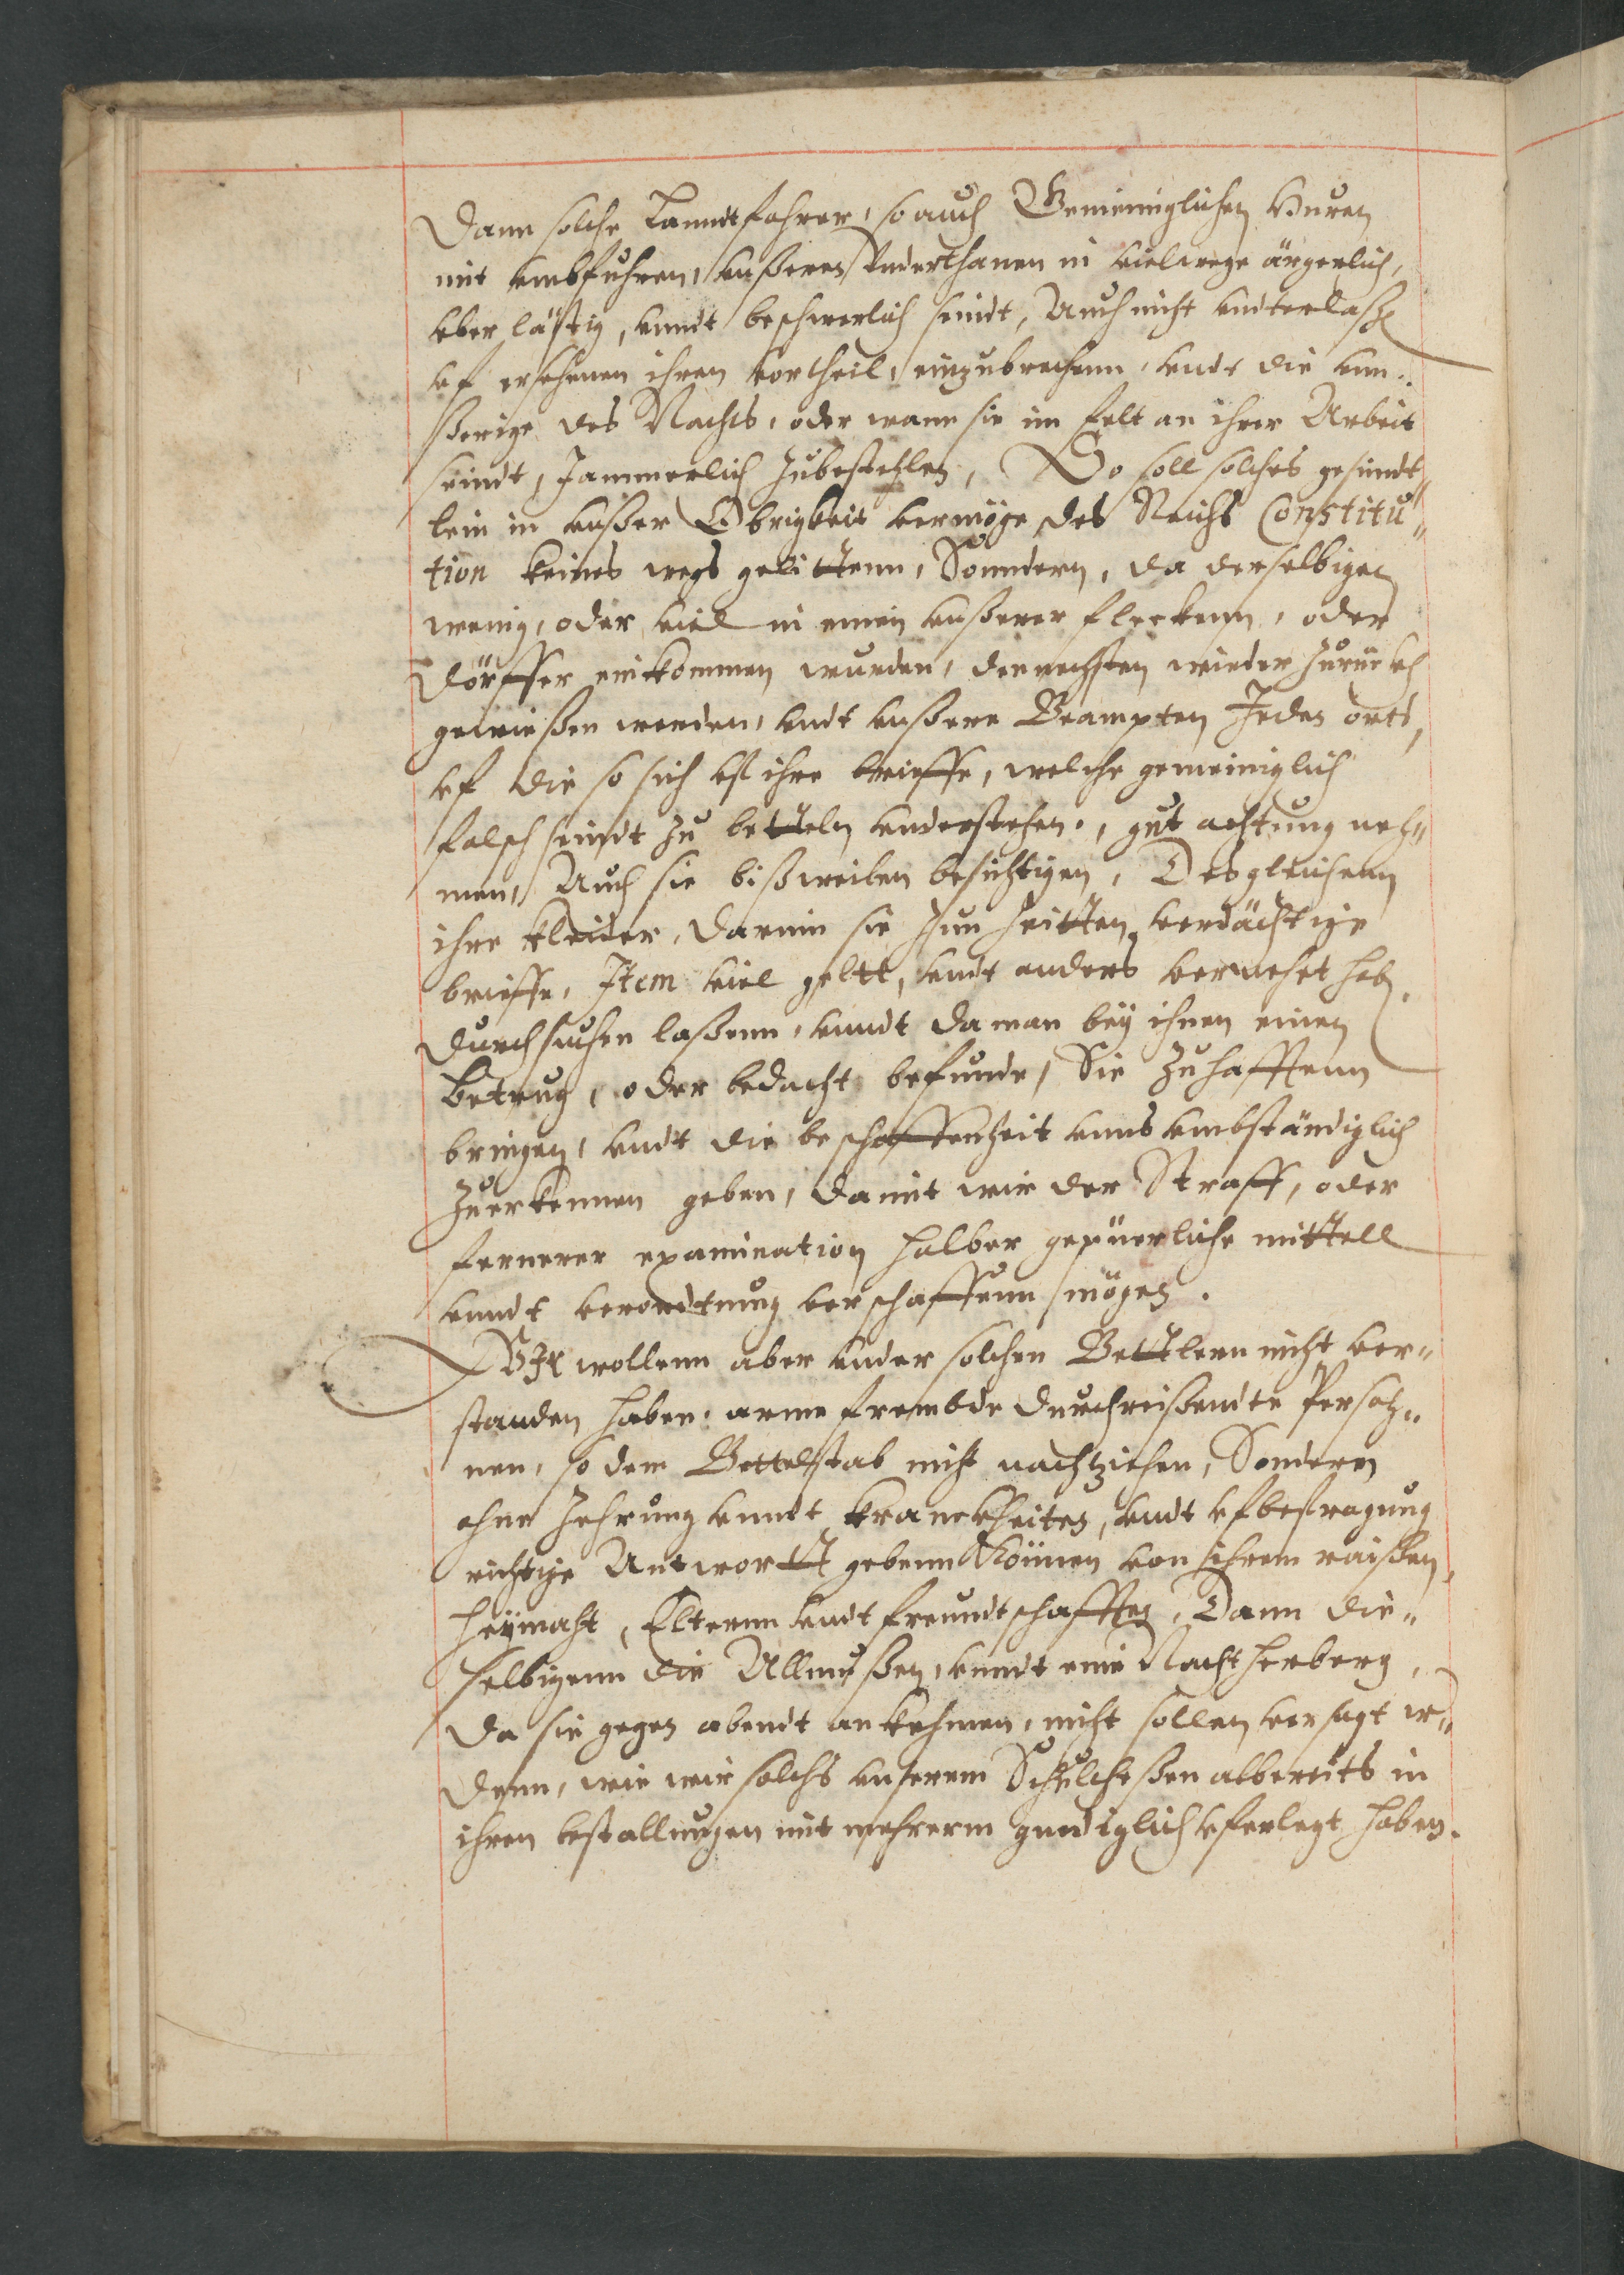 Dann solche Lanndtfahrer, so auch Gemeiniglichen Huren
mit vmbfuhren, vnßeren Vnderthanen in vielwege ärgerlich,
vber lästig, vnndt beschwerlich seindt, Auch nicht vnderlaßen
vf ersehenen ihren vortheil, einzubrechenn, vndt die vnn¬
ßerige des Nachts, oder wann sie im felt an ihrer Arbeit
seindt, Jammerlich zubestehlen, So soll solches gesindt¬
lein in vnßer Obrigkeit vermöge des Reichs Constitu¬
tion keines wegs gelittenn, Sonndern, da derselbigen
wenig, oder viel in einen vnßerer fleckenn, oder
Dörffer einkommen wurden, dennechsten wieder zurückh
gewießen werden, vndt vnßere Beampten Jedes orts,
vf die so sich vf ihre brieffe, welche gemeiniglich
falsch seindt zu bettelen vnderstehen, gut achtung neh¬
men, Auch sie bißweilen besichtigen, Desgleichenn
ihre kleider, darinn sie zun zeitten verdächtige
brieffe, Item viel geltt, vndt anders vernehet haben,
durchsuchen laßenn, vnndt da man bey ihnen einen
betrug, oder bedacht befunde, Sie zu hafftenn
bringen, vndt die beschaffenheit vnns vmbständiglich
zuerkennen geben, damit wir der Straff, oder
fernerer examination halber gepüerliche mittell
vnndt verordtnung verschaffenn mögen.
Wir wollenn aber vnder solchen Bettlern nicht ver¬
standen haben, arme frembde durchreißendte Persoh¬
nen, so dem Bettelstab nicht nachziehen, Sondern
ohne zehrung vnndt kranckheiten, vndt vf befragung
richtige Antwortt gebenn können von ihrem raißen,
heymaht, Elternn vndt freundtschafften, Dann die¬
selbigenn die Allmußen, vnndt eine Nachtherberg,
da sie gegen abendt ankehmen, nicht sollen versagt we¬
denn, wie wir solchs vnserem Schulcheßen albereits in
ihren bestallungen mit mehrerm gnediglich vferlegt haben.